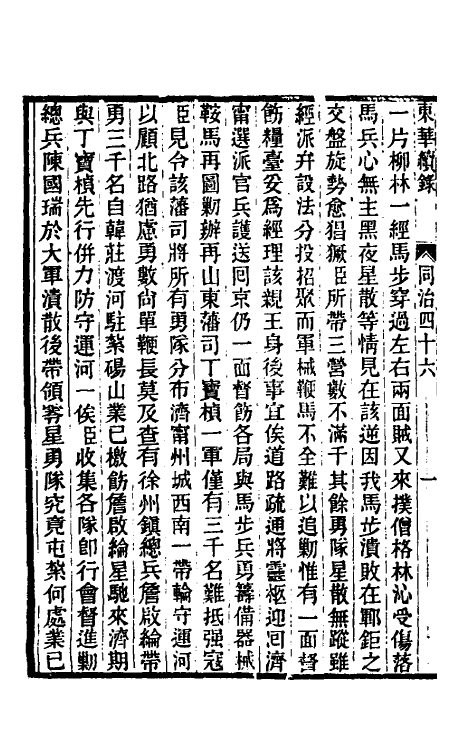 東華續錄 同治四十六 一
一片柳林一經馬步穿過左右兩面賊又來撲僧格林沁受傷落
馬兵心無主黑夜星散等情見在該逆因我馬步潰敗在鄆鉅之
交盤旋勢愈猖獗臣所帶三營數不滿千其餘勇隊星散無蹤雖
經派弁設法分投招聚而軍械鞭馬不全難以追勦惟有一面督
飭糧臺妥爲經理該親王身後事宜俟道路疏通將靈柩迎回濟
甯選派官兵護送回京仍一面督飭各局與馬步兵勇籌備器械
鞍馬再圖勦辦再山東藩司丁寶楨一軍僅有三千名難抵强寇
臣見令該藩司將所有勇隊分布濟甯州城西南一帶輪守運河
以顧北路猶慮勇數尙單鞭長莫及查有徐州鎭總兵詹啟綸帶
勇三千名自韓莊渡河駐紮碭山業已檄飭詹啟綸星馳來濟期
與丁寶楨先行併力防守運河一俟臣收集各隊卽行會督進勦
總兵陳國瑞於大軍潰散後帶領零星勇隊究竟屯紮何處業已